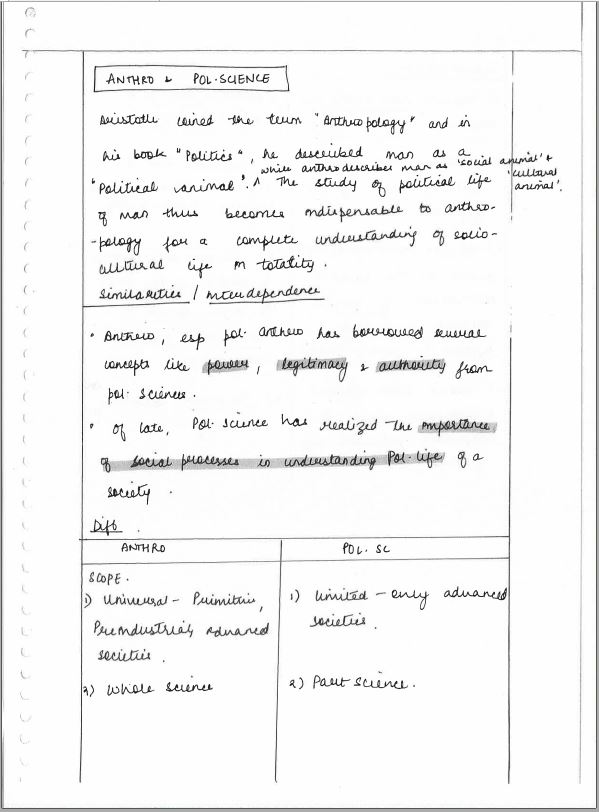 ANTHRO & POL·SCIENCE
Aristotle coined the term "Anthropology" and in
his book "Politics", he described man as a
while anthro describes man as 'social animal' &
"Political animal". ^ The study of political life 'cultural
animal'.
of man thus becomes indispensable to anthro-
-pology for a complete understanding of socio-
cultural life in totality.
Similarities / interdependence
• Anthro, esp pol· anthro has borrowed several
concepts like power, legitimacy & authority from
pol· science.
• Of late, Pol· science has realized the importance
of social processes in understanding Pol· life of a
society.
Diff.
ANTHRO
POL. SC
SCOPE.
1) Universal - Primitive,
Preindustrial, advanced
societies.
1) limited - only advanced
societies.
2) Whole science
2) Part science.